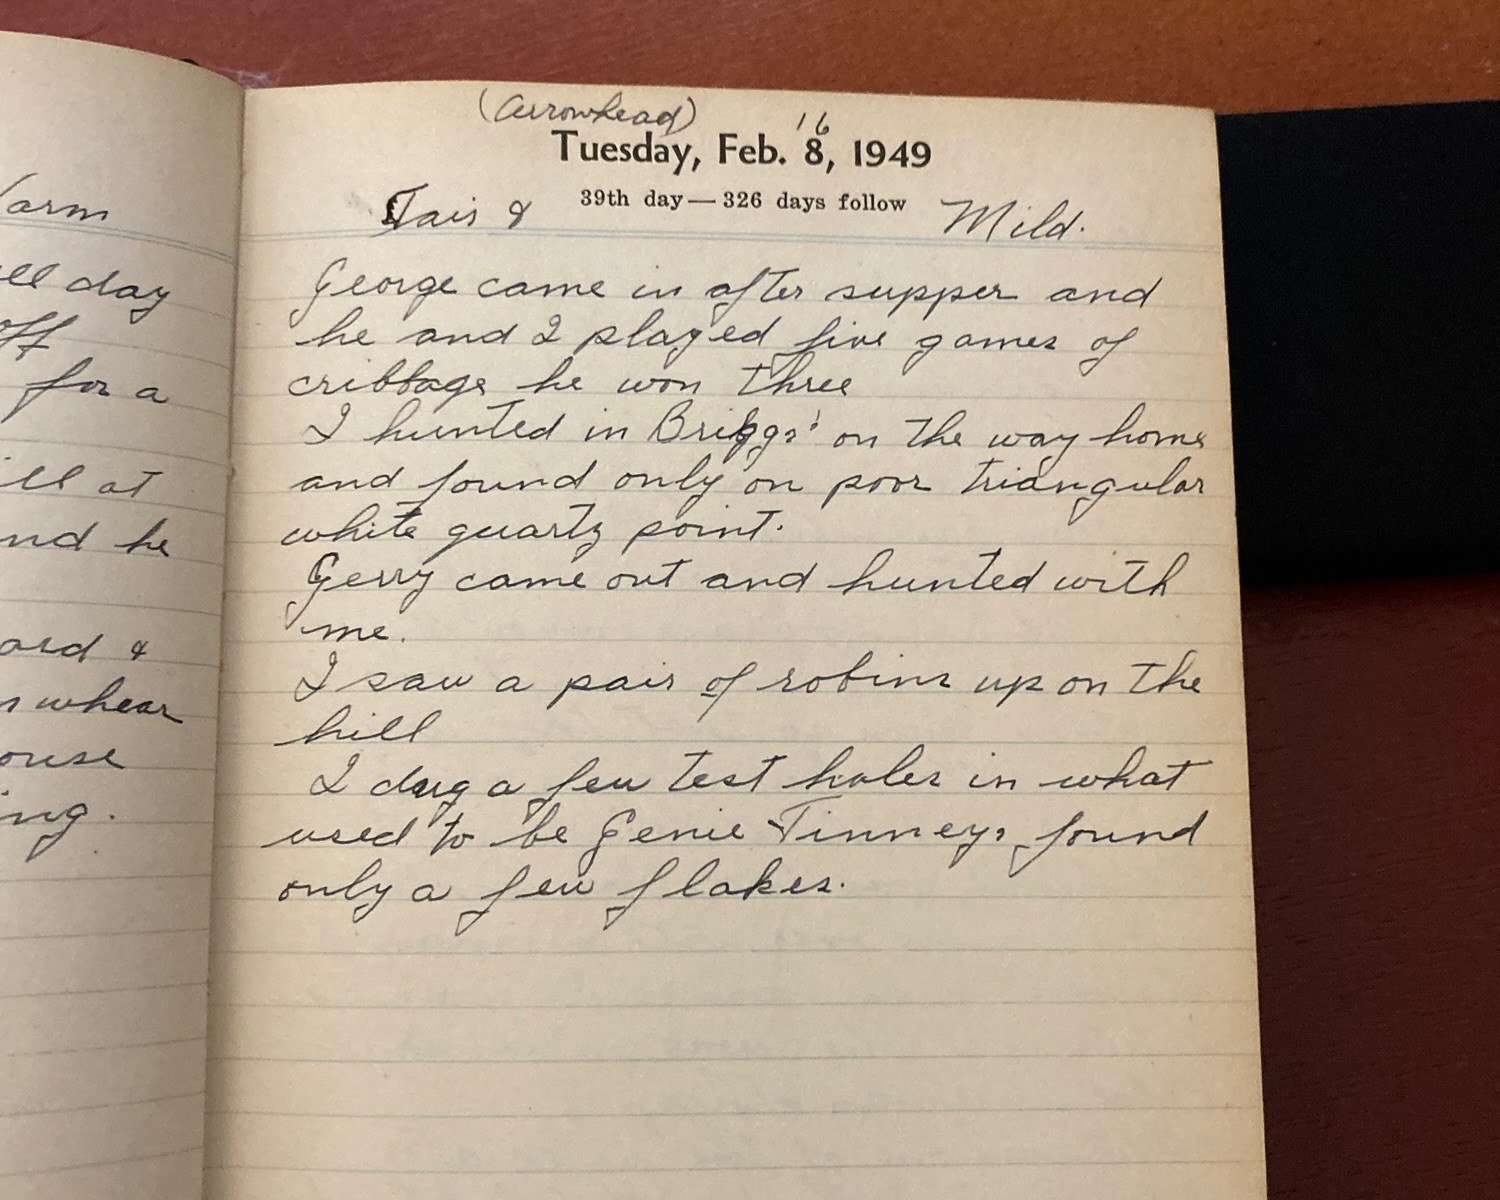 arm
ll day
off
for a
ill at
and he
ard &
whear
ouse
ing.
(Arrowhead)
16
Tuesday, Feb. 8, 1949
39th day—326 days follow
Fair & Mild.
George came in after supper and
he and I played five games of
cribbage he won three
I hunted in Briggs' on the way home
and found only on poor triangular
white quartz point.
Gerry came out and hunted with
me.
I saw a pair of robins up on the
hill
I dug a few test holes in what
used to be Genie Tinneys found
only a few flakes.